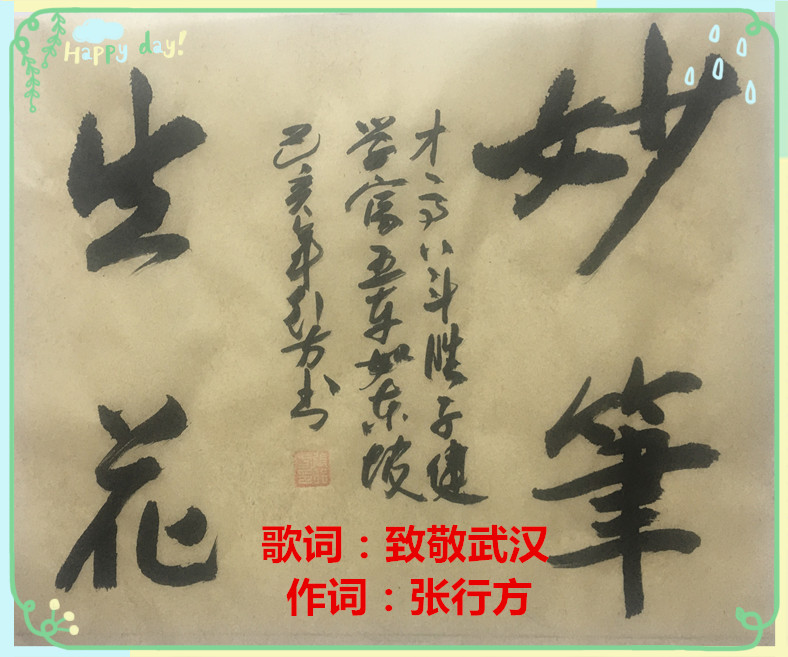 Happy day!
妙筆
才高八斗胜子健
学富五车如东坡
己亥年行方书
生花
歌词：致敬武汉
作词：张行方